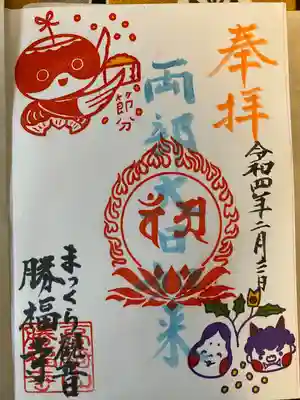 奉拝
令和四年二月三日
両祖大日如来
節分
まっくら観音
勝福寺